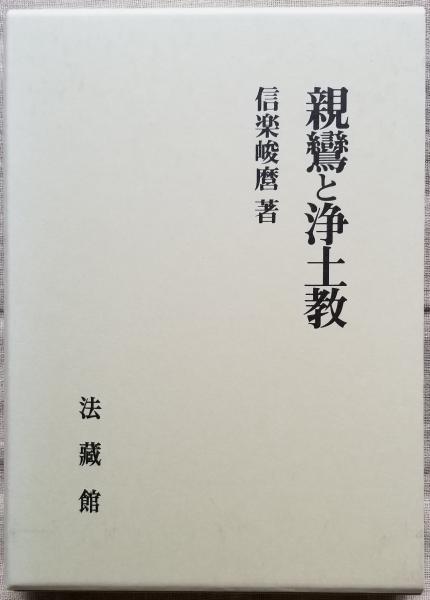 親鸞と浄土教
信楽峻麿 著
法藏館